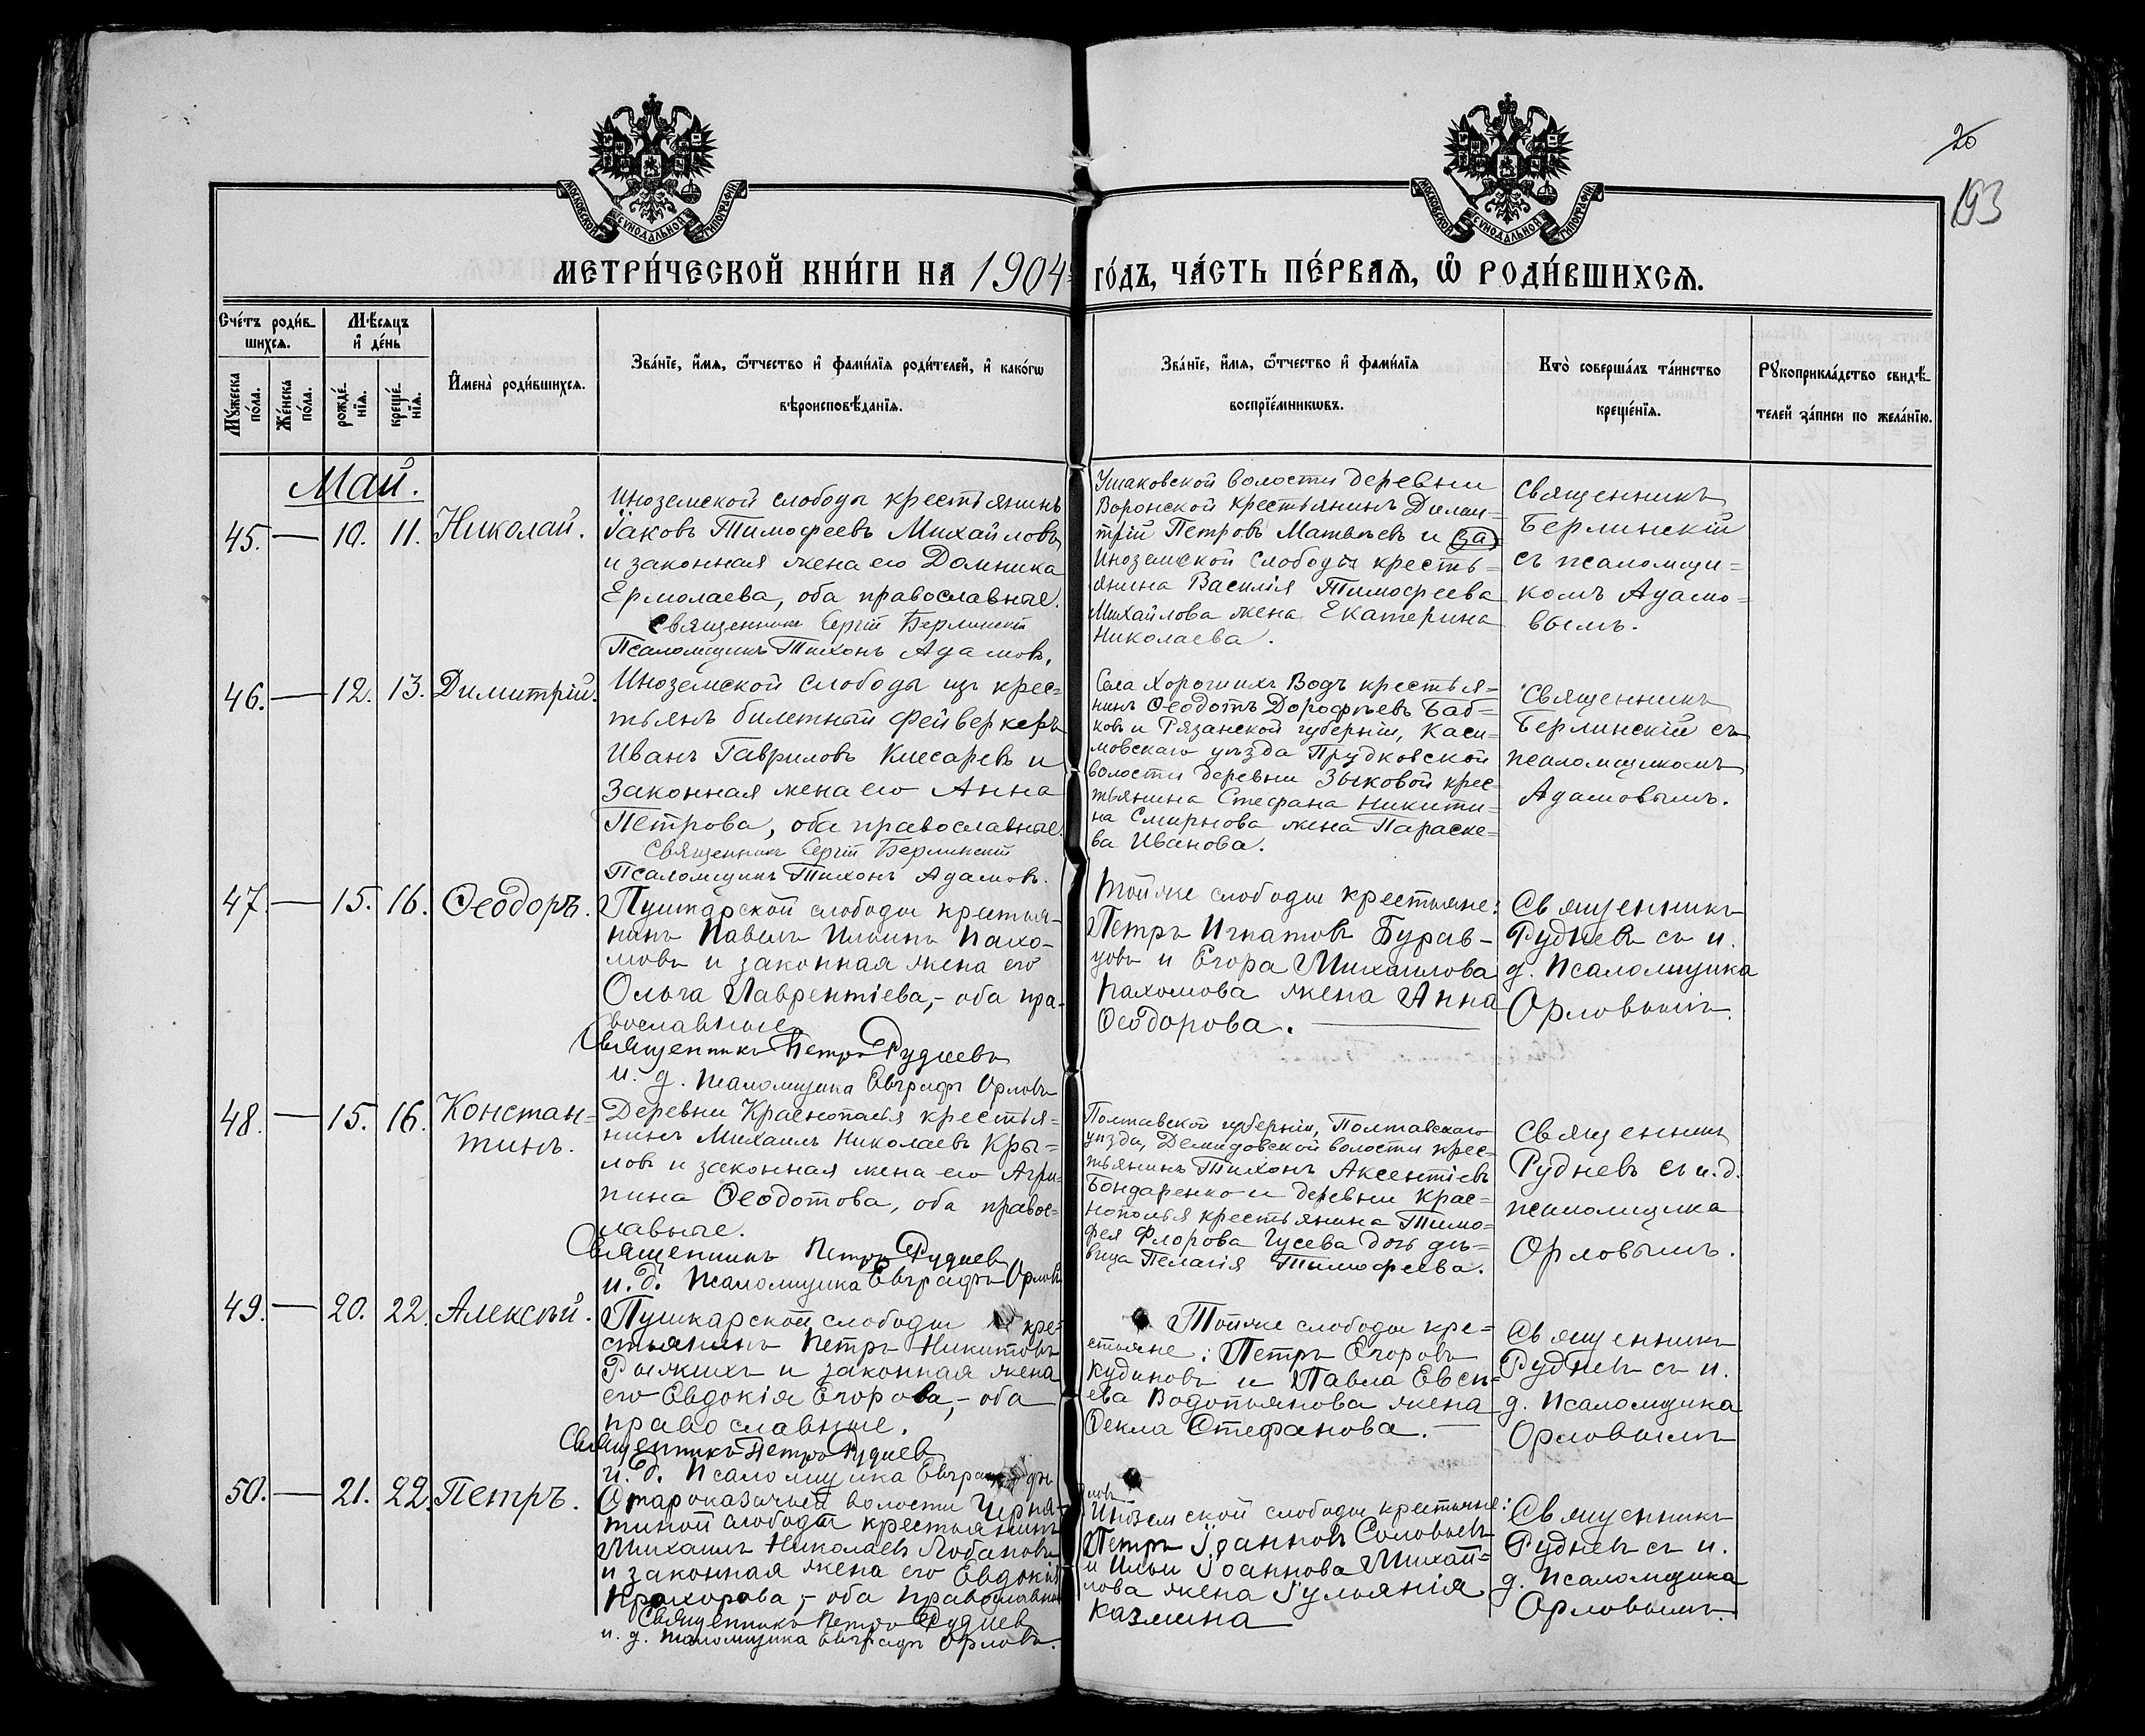 20
193
МОСКОВСКОЙ СѴНОДАЛЬНОЙ ТИПОГРАФІИ
МОСКОВСКОЙ СѴНОДАЛЬНОЙ ТИПОГРАФІИ
МЕТРИ́ЧЕСКОЙ КНИ́ГИ НА 1904 ГО́ДЪ, ЧА́СТЬ ПЕ́РВАѦ, Ѡ҆ РОДИ́ВШИХСѦ.
Сче́тъ роди́в-
шихсѧ.
Мѣ́сѧцъ
и҆ де́нь
Мꙋ́жеска
по́ла.
Же́нска
по́ла.
рожде́-
нїѧ.
креще́-
нїѧ.
И҆мена̀ роди́вшихсѧ.
Зва́нїе, и҆́мѧ, ѻ҆́тчество и҆ фами́лїѧ роди́телей, и҆ како́гѡ
вѣроисповѣ́данїѧ.
Зва́нїе, и҆́мѧ, ѻ҆́тчество и҆ фами́лїѧ
воспрїе́мникѡвъ.
Кто̀ соверша́лъ та́инство
креще́нїѧ.
Рꙋкоприкла́дство свидѣ́-
телей за́писи по жела́нїю.
Май.
45. — 10. 11. Николай.
Иноземской слободы крестьянинъ
Іаковъ Тимофеевъ Михайловъ
и законная жена его Домника
Ермолаева, оба православные.
Священникъ Сергій Берлинскій
Псаломщикъ Тихонъ Адамовъ.
Ушаковской волости деревни
Воронской крестьянинъ Дими-
трій Петровъ Матвѣевъ и (за)
Иноземской слободы кресть-
янина Василія Тимофеева
Михайлова жена Екатерина
Николаева.
Священникъ
Берлинскій
съ псаломщи-
комъ Адамо-
вымъ.
46. — 12. 13. Димитрій.
Иноземской слободы изъ крес-
тьянъ билетный фейверкеръ
Иванъ Гавриловъ Клесаревъ и
законная жена его Анна
Петрова, оба православные.
Священникъ Сергій Берлинскій
Псаломщикъ Тихонъ Адамовъ.
Села Хорошихъ Водъ крестья-
нинъ Ѳеодотъ Дорофѣевъ Баб-
ковъ и Рязанской губерніи, Каси-
мовскаго уѣзда Прудковской
волости деревни Зыковой крес-
тьянина Стефана Никити-
на Смирнова жена Параске-
ва Иванова.
Священникъ
Берлинскій съ
псаломщикомъ
Адамовымъ.
47. — 15. 16. Ѳеодоръ.
Пушкарской слободы крестья-
нинъ Павелъ Ильинъ Пахо-
мовъ и законная жена его
Ольга Лаврентіева,- оба пра-
вославные.
Священникъ Петръ Рудневъ
и. д. псаломщика Евграфъ Орловъ
Той же слободы крестьяне:
Петръ Игнатовъ Бурав-
цовъ и Егора Михаилова
Пахомова жена Анна
Ѳеодорова.
Священникъ
Рудневъ съ и.
д. псаломщика
Орловымъ.
48. — 15. 16. Констан-
тинъ.
Деревни Краснополья крестья-
нинъ Михаилъ Николаевъ Кры-
ловъ и законная жена его Агри-
пина Ѳеодотова, оба правос-
лавные.
Священникъ Петръ Рудневъ
и. д. псаломщика Евграфъ Орловъ
Полтавской губерніи, Полтавскаго
уѣзда, Демидовской волости крес-
тьянинъ Тихонъ Аксентіевъ
Бондаренко и деревни Крас-
нополья крестьянина Тимо-
фея Флорова Гусева дочь дѣ-
вица Пелагія Тимофеева.
Священникъ
Рудневъ съ и. д.
псаломщика
Орловымъ.
49. — 20. 22. Алексѣй.
Пушкарской слободы кре-
стьянинъ Петръ Никитовъ
Рыжихъ и законная жена
его Евдокія Егорова,- оба
православные.
Священникъ Петръ Рудневъ
и. д. псаломщика Евграфъ
Той же слободы кре-
стьяне: Петръ Егоровъ
Кудиновъ и Павла Евсі-
ева Водопьянова жена
Ѳекла Стефанова.
Священникъ
Рудневъ съ и.
д. псаломщика
Орловымъ
50. — 21. 22. Петръ.
Староказачьей волости
слободы крестьянинъ
Михаилъ Николаевъ Лобановъ
и законная жена его Евдокія
Прохорова,- оба православные
Священникъ Петръ Рудневъ
и. д. псаломщика Евграфъ Орловъ.
Иноземской слободы крестьяне:
Петръ Іоанновъ Соловьевъ
и Ильи Іоаннова Михай-
лова жена Іульянія
Казмина
Священникъ
Рудневъ съ и.
д. псаломщика
Орловымъ.